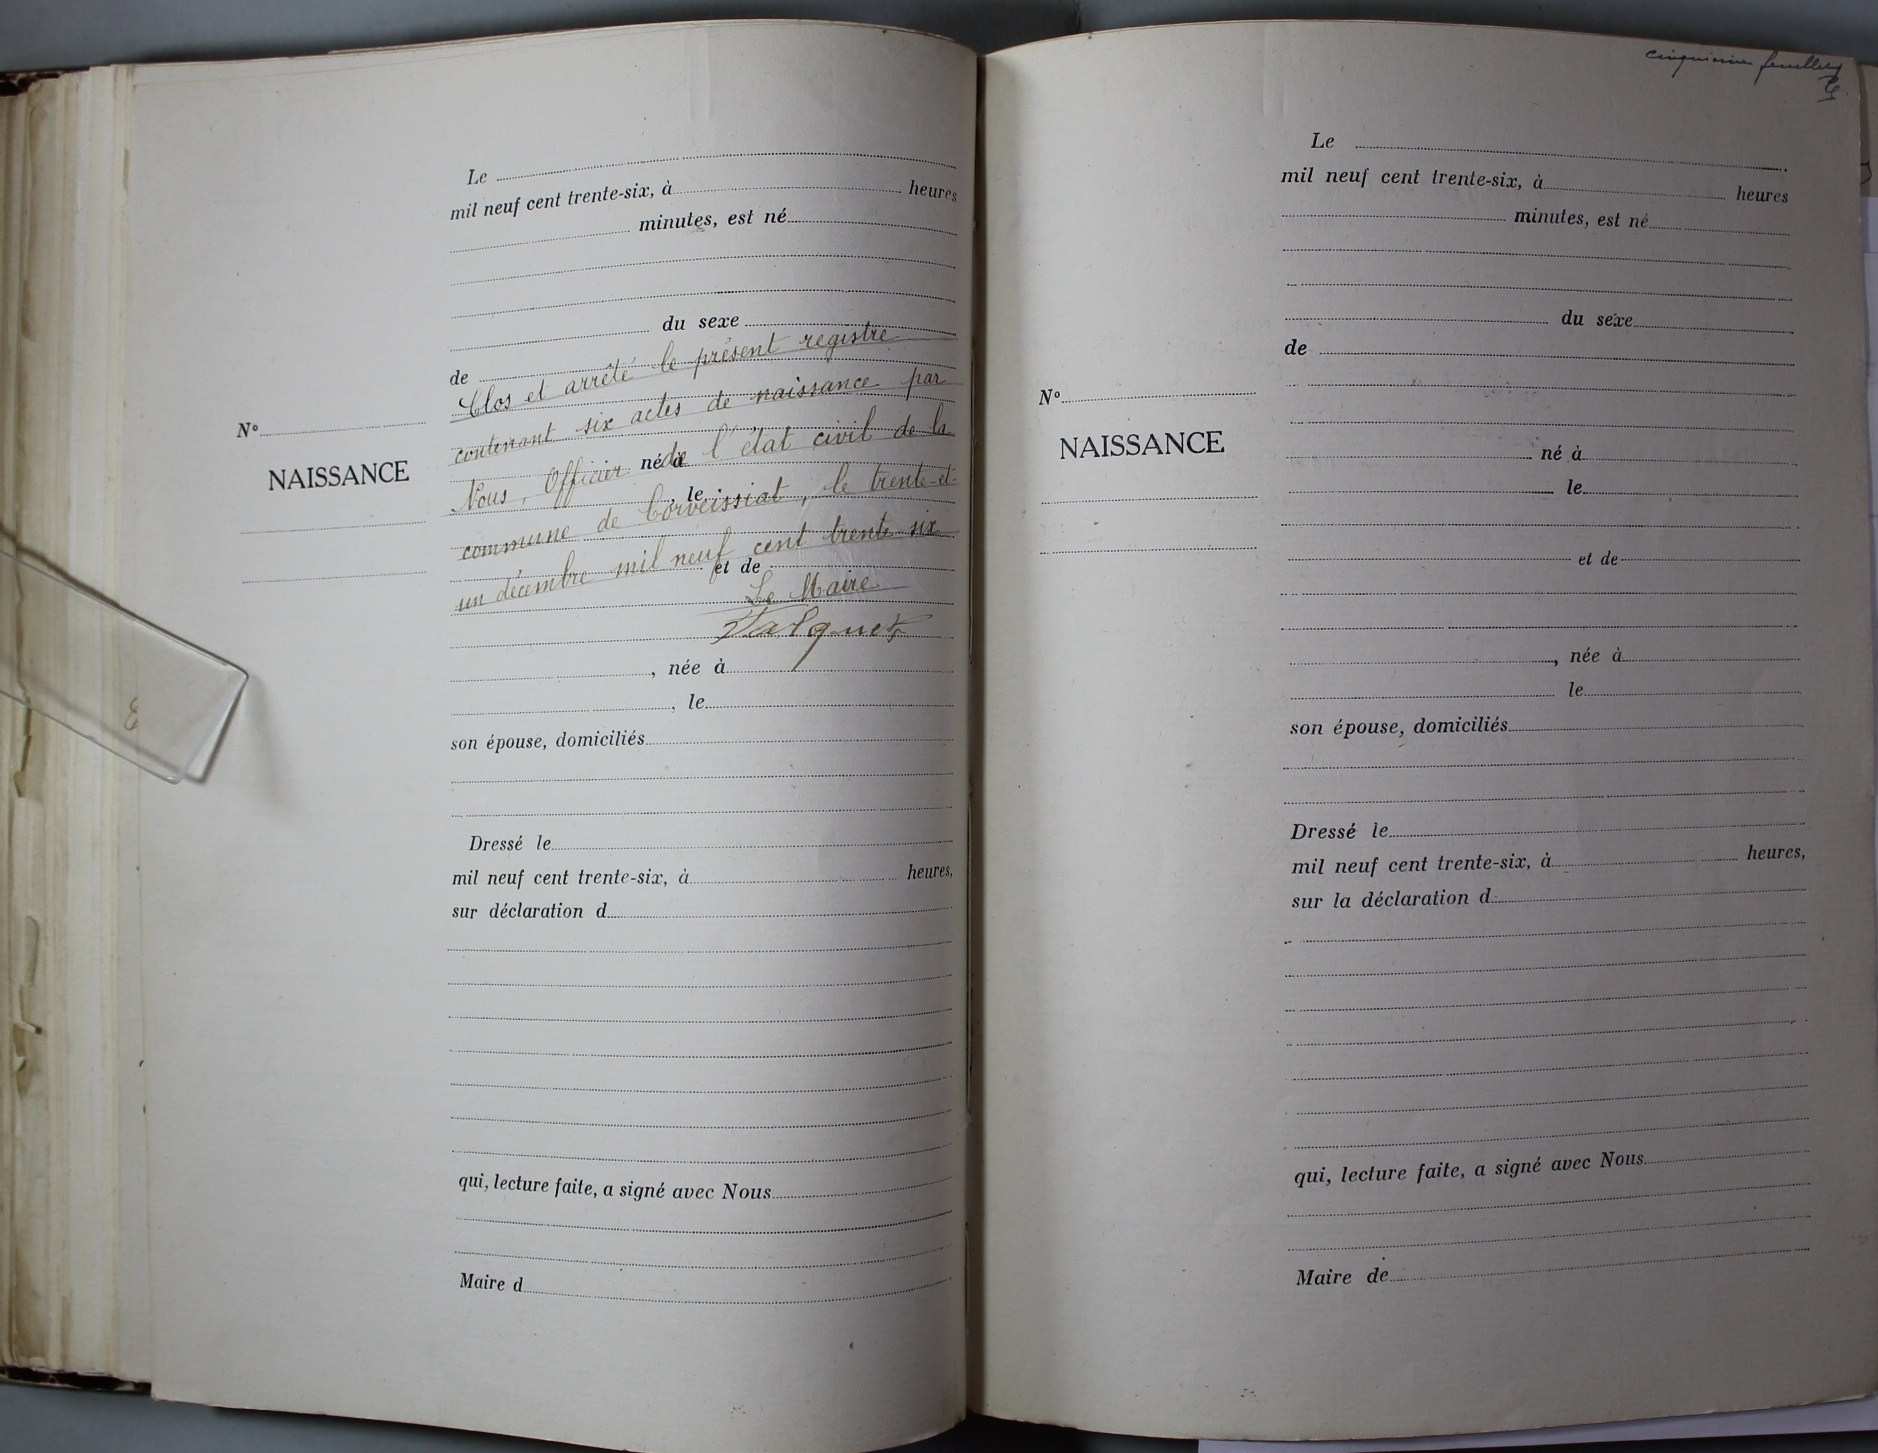 Le
mil neuf cent trente-six, à heures
minutes, est né
du sexe
de
Clos et arrêté le présent registre
contenant six actes de naissance par
Nous, Officier de l'état civil de la
né à
, le
commune de Corveissiat, le trente-et-
un décembre mil neuf cent trente six
et de
Le Maire
, née à
, le
son épouse, domiciliés
Dressé le
mil neuf cent trente-six, à heures,
sur déclaration d
qui, lecture faite, a signé avec Nous
Maire d
N°
NAISSANCE
cinquième feuillet
Le
mil neuf cent trente-six, à heures
minutes, est né
du sexe
de
né à
le
et de
, née à
le
son épouse, domiciliés
Dressé le
mil neuf cent trente-six, à heures,
sur la déclaration d
qui, lecture faite, a signé avec Nous
Maire de
N°
NAISSANCE